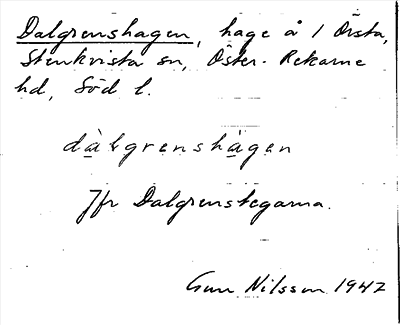 Dalgrenshagen, hage å 1 Örsta,
Stenkvista sn, Öster-Rekarne
hd, Söd l.
dàlgrenshàgen
Jfr Dalgrenstegarna.
Gun Nilsson 1947